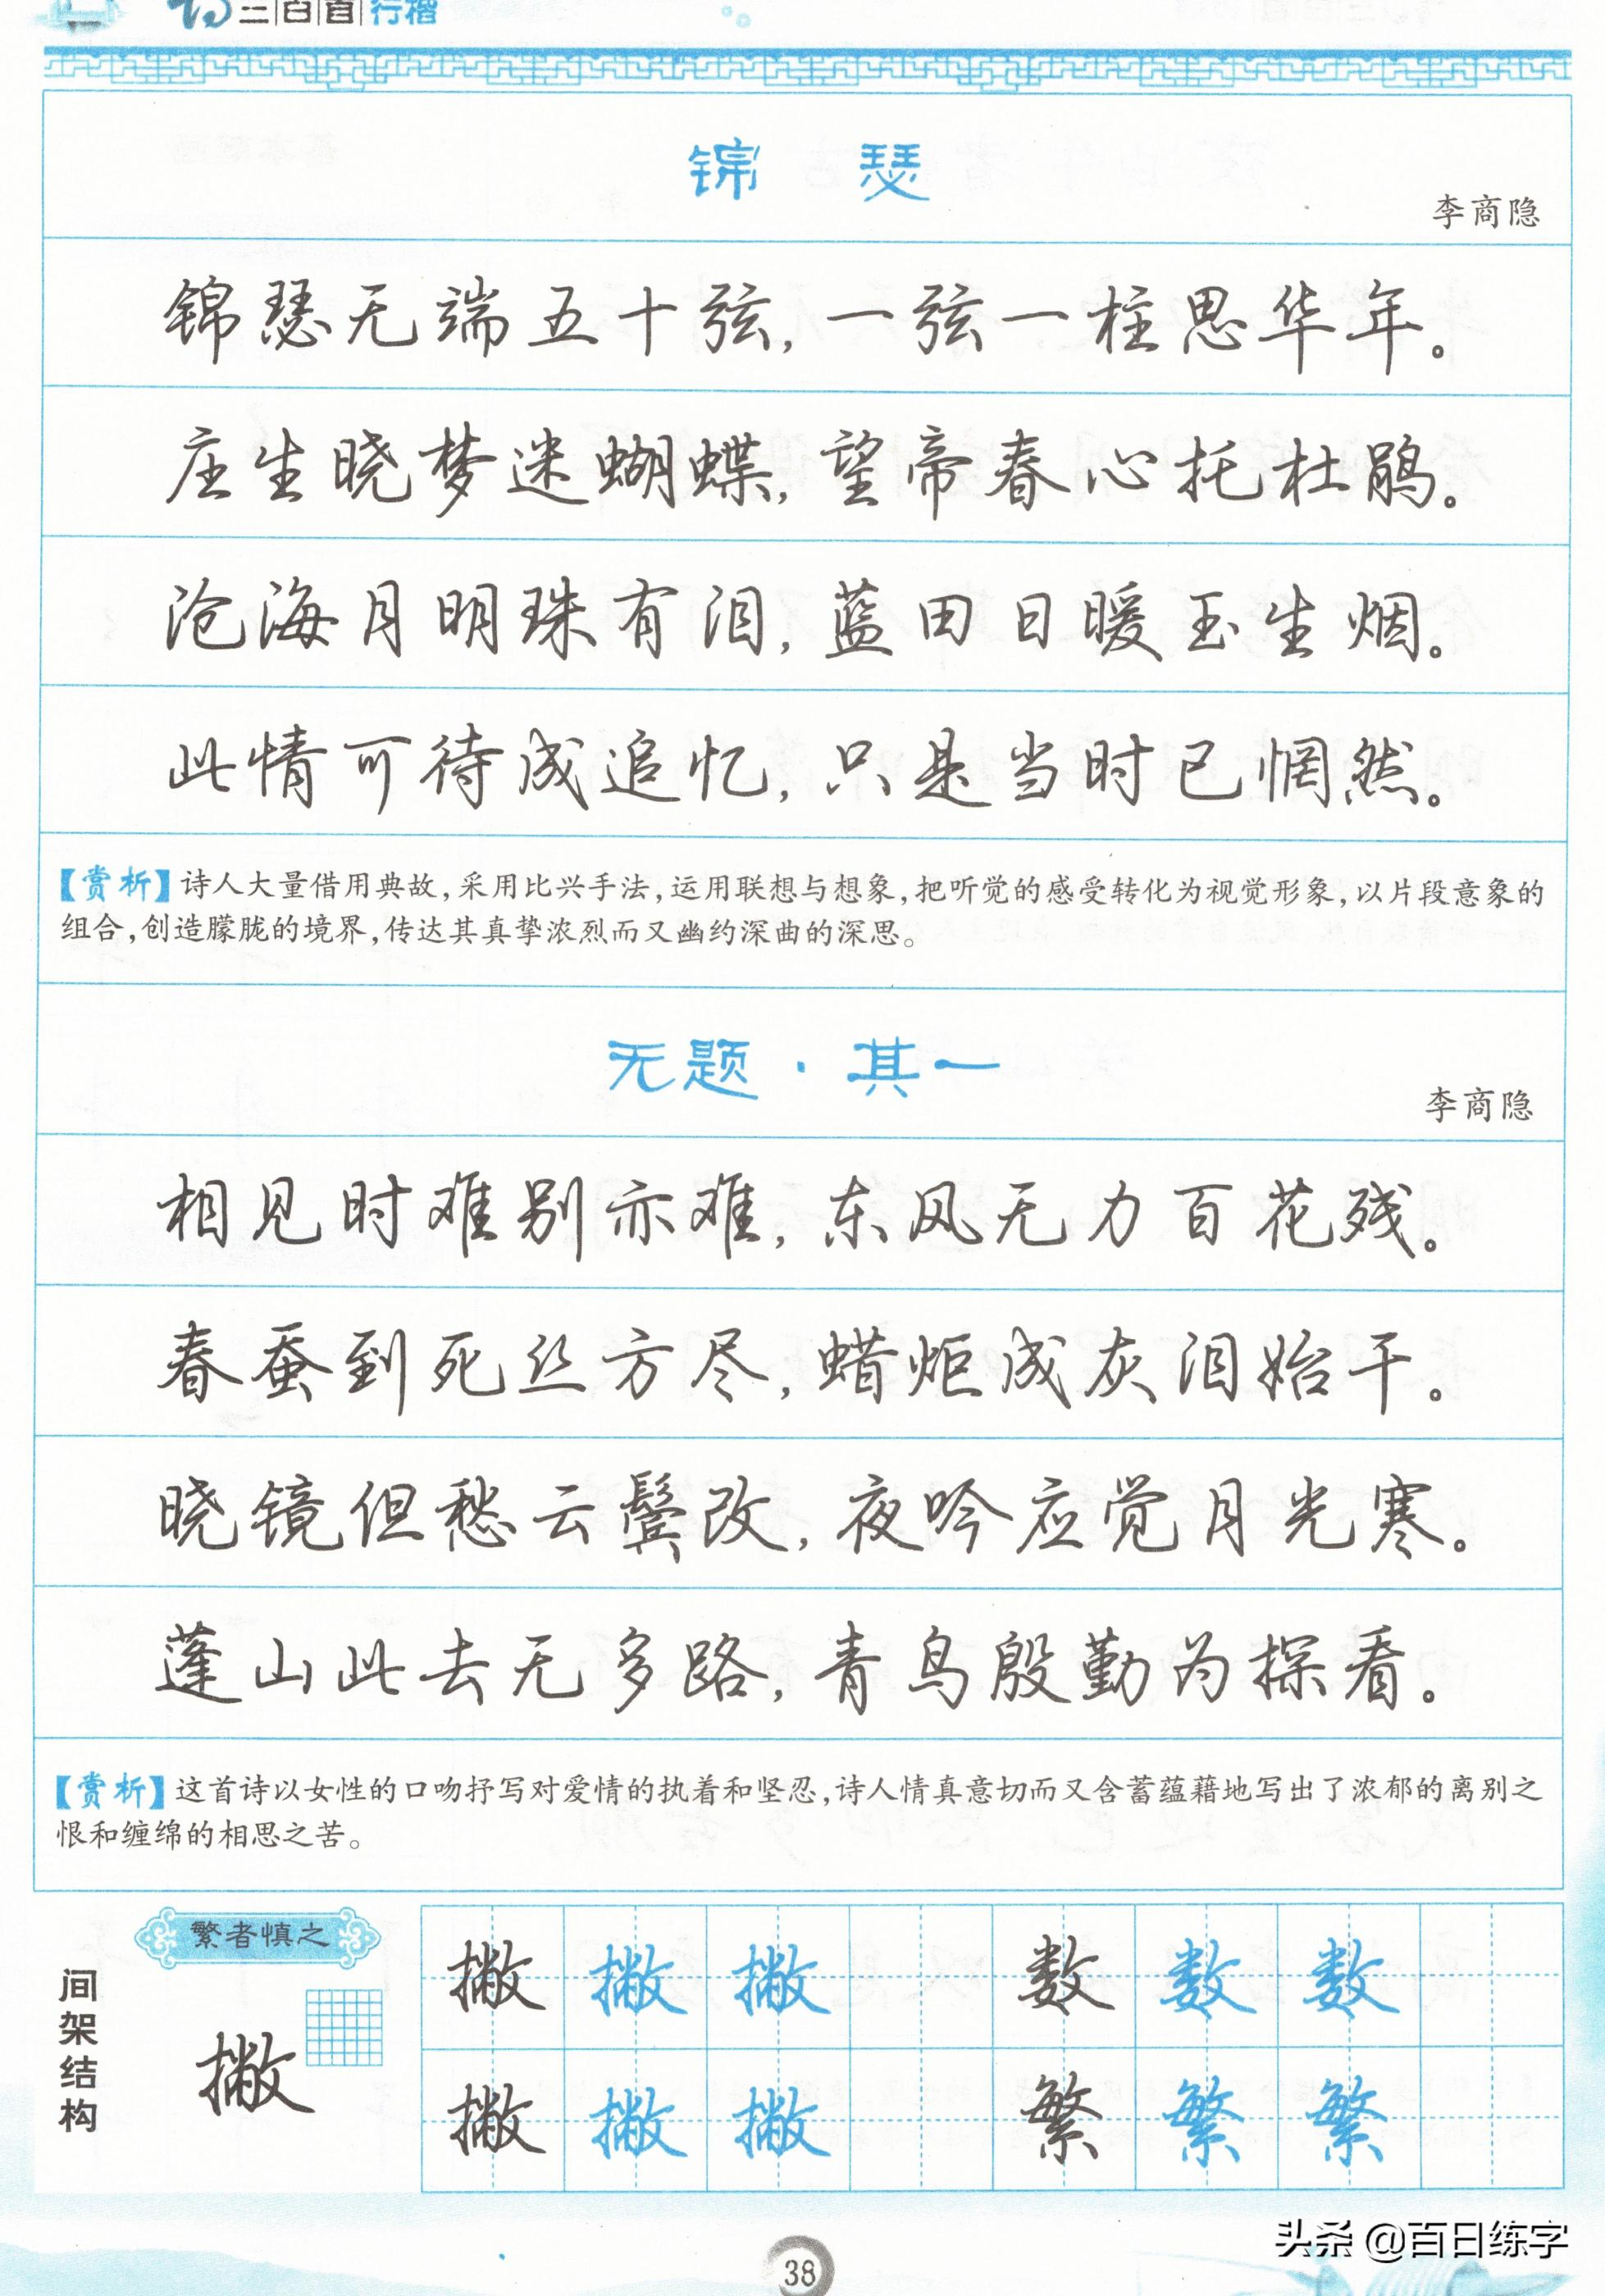 诗三百首行楷
锦 瑟
李商隐
锦瑟无端五十弦，一弦一柱思华年。
庄生晓梦迷蝴蝶，望帝春心托杜鹃。
沧海月明珠有泪，蓝田日暖玉生烟。
此情可待成追忆，只是当时已惘然。
【赏析】诗人大量借用典故，采用比兴手法，运用联想与想象，把听觉的感受转化为视觉形象，以片段意象的
组合，创造朦胧的境界，传达其真挚浓烈而又幽约深曲的深思。
无题·其一
李商隐
相见时难别亦难，东风无力百花残。
春蚕到死丝方尽，蜡炬成灰泪始干。
晓镜但愁云鬓改，夜吟应觉月光寒。
蓬山此去无多路，青鸟殷勤为探看。
【赏析】这首诗以女性的口吻抒写对爱情的执着和坚忍，诗人情真意切而又含蓄蕴藉地写出了浓郁的离别之
恨和缠绵的相思之苦。
间架结构
繁者慎之
撇
撇 撇 撇 数 数 数
撇 撇 撇 繁 繁 繁
38
头条 @百日练字